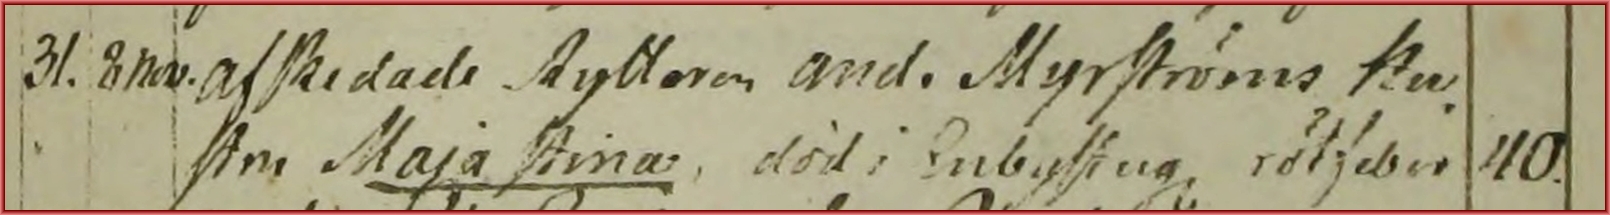 31. 8 Nov. afskedade Ryttaren And. Myrströms hu
stru Maja Stina, död i Enbystug, rötfeber 40.